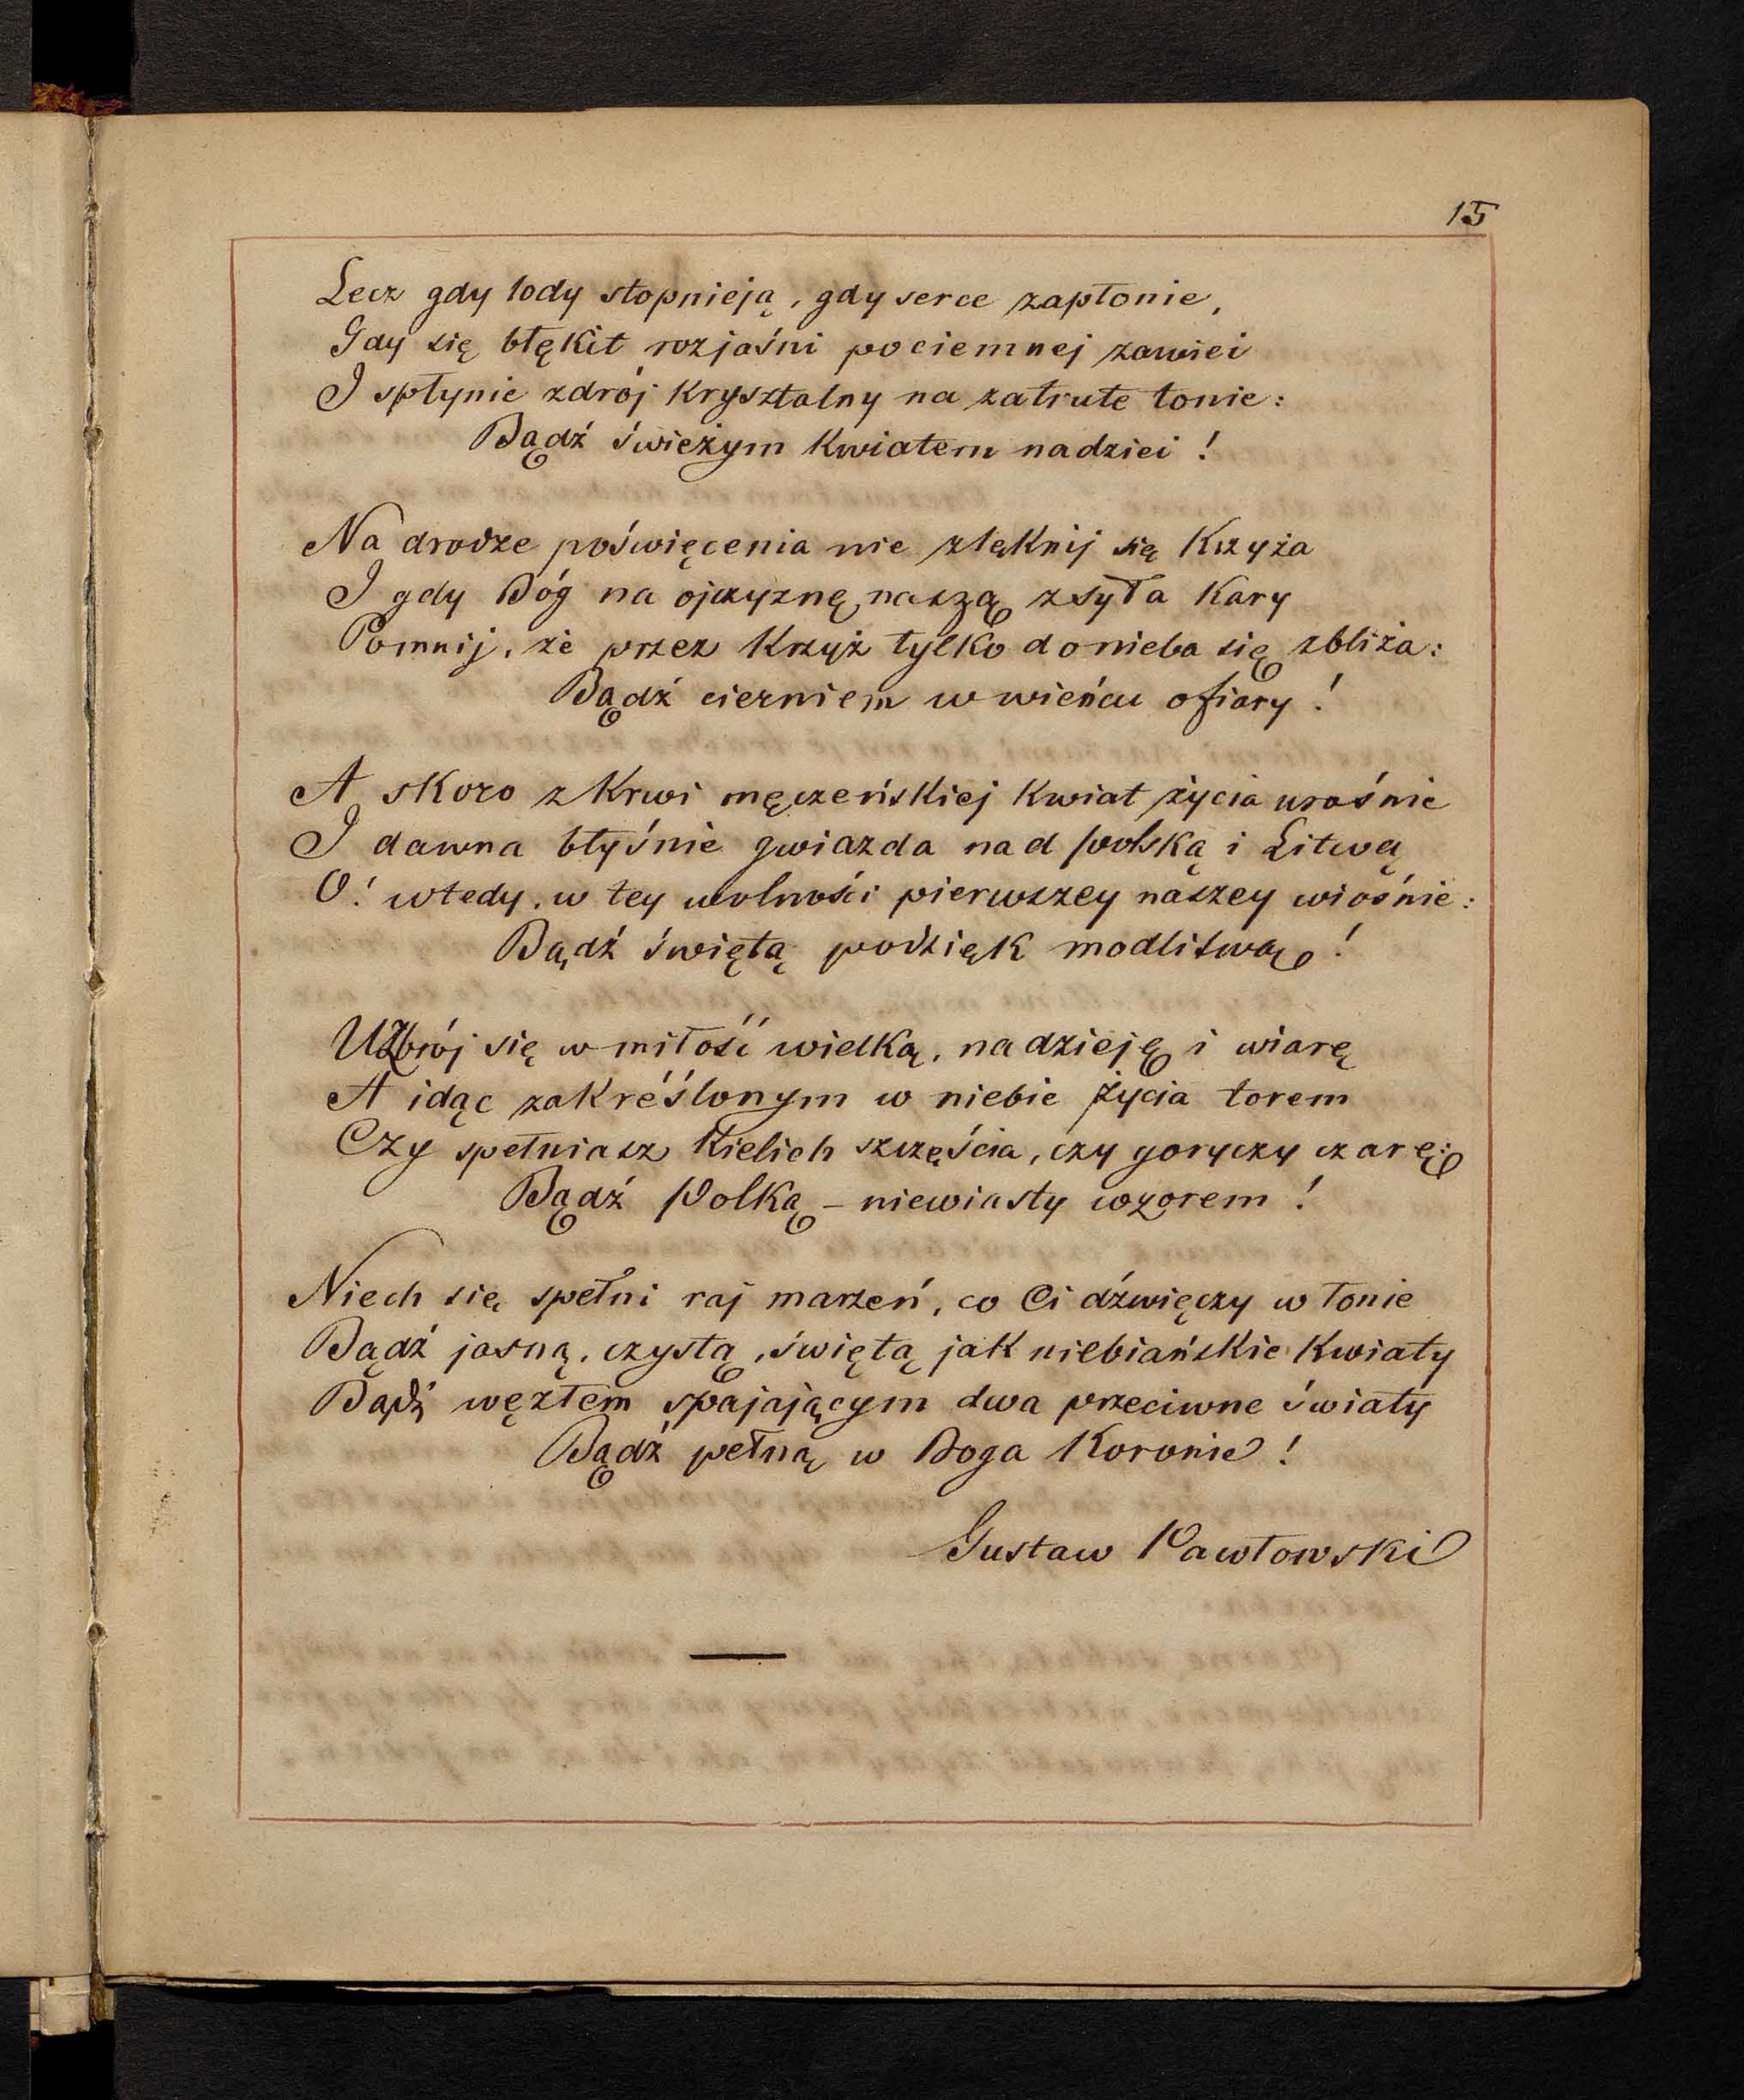 15
Lecz gdy lody stopnieją, gdy serce zapłonie,
Gdy się błękit rozjaśni po ciemnej zawiei
I spłynie zdrój kryształny na zatrute tonie:
Bądź świeżym kwiatem nadziei !
Na drodze poświęcenia nie zlęknij się Krzyża
I gdy Bóg na ojczyznę naszą zsyła kary
Pomnij, że przez Krzyż tylko do nieba się zbliża:
Bądź cierniem w wieńcu ofiary !
A skoro z Krwi męczeńskiej kwiat życia urośnie
I dawna błyśnie gwiazda nad Polską i Litwą
O! wtedy, w tey wolności pierwszey naszey wiośnie:
Bądź świętą podzięk modlitwą !
Uzbrój się w miłość wielką, nadzieję i wiarę
A idąc zakréślonym w niebie życia torem
Czy spełniasz Kielich szczęścia, czy goryczy czarę:
Bądź Polką – niewiasty wzorem !
Niech się spełni raj marzeń, co Ci dźwięczy w łonie
Bądź jasną, czystą, świętą jak niebiańskie kwiaty
Bądź węzłem spajającym dwa przeciwne światy
Bądź pełną w Boga Koronie !
Gustaw Pawłowski